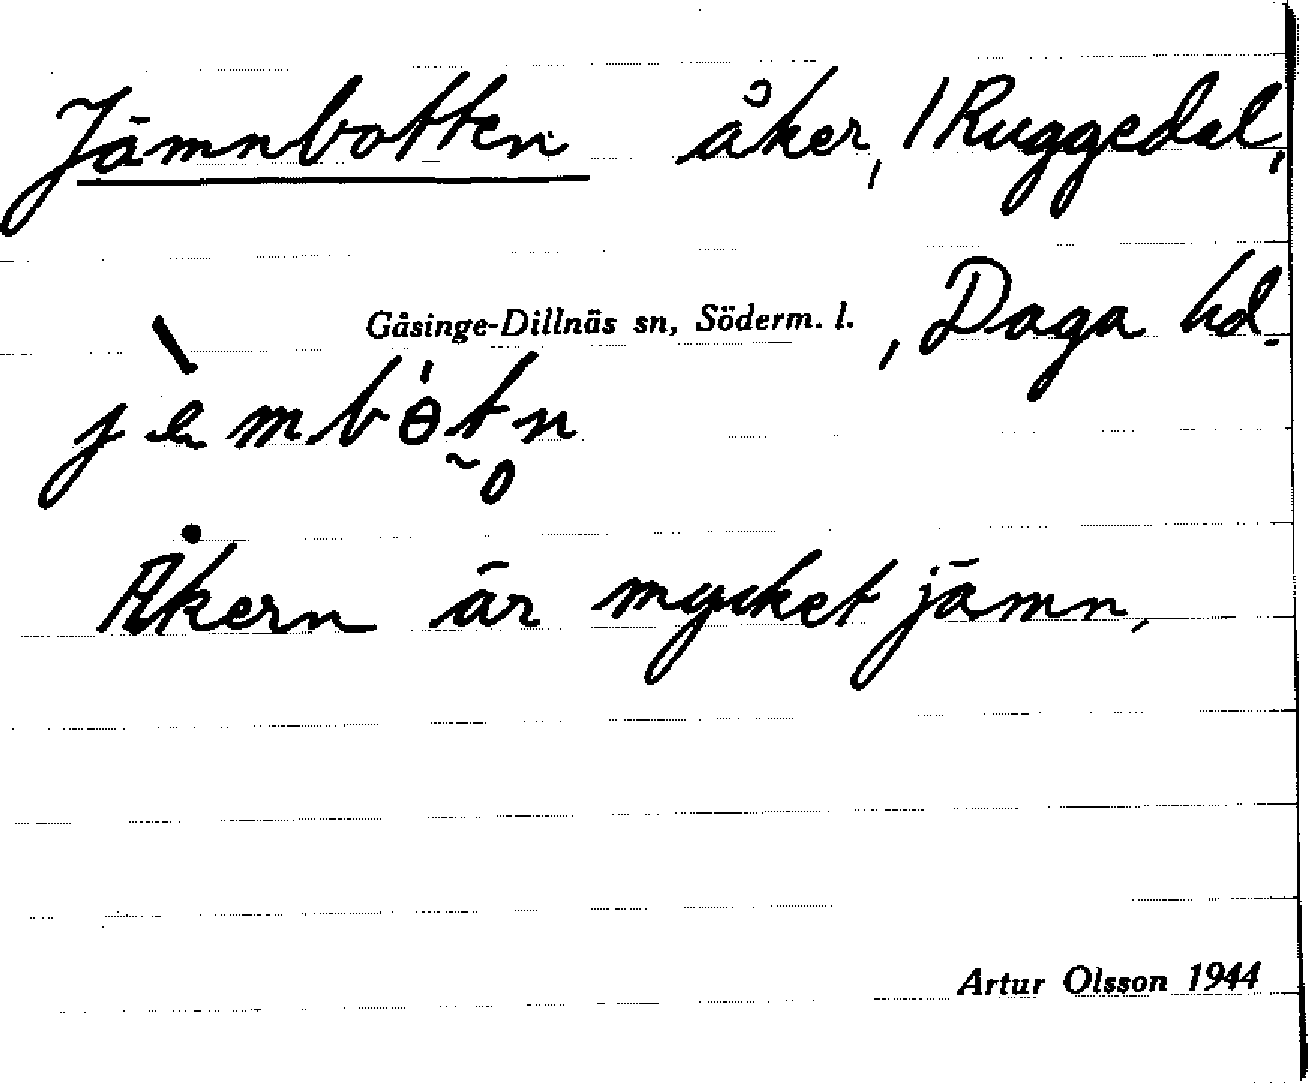 Jämnbotten åker, /Ruggedal,
Gåsinge-Dillnäs sn, Söderm. l. , Daga hd.
Åkern är mycket jämn.
Artur Olsson 1944